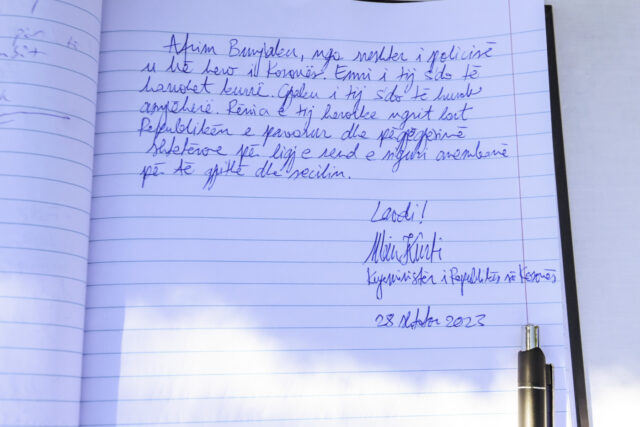 Afrim Bunjaku, nga rreshter i policisë
u bë hero i Kosovës. Emri i tij s'do të
harrohet kurrë. Gjaku i tij s'do të humb
asnjëherë. Rënia e tij heroike ngrit lart
Republikën e pavarur dhe përgjegjësinë
shtetërore për ligj e rend e siguri anembanë
për të gjithë dhe secilin.
Lavdi!
Albin Kurti
Kryeministër i Republikës së Kosovës
28 shtator 2023